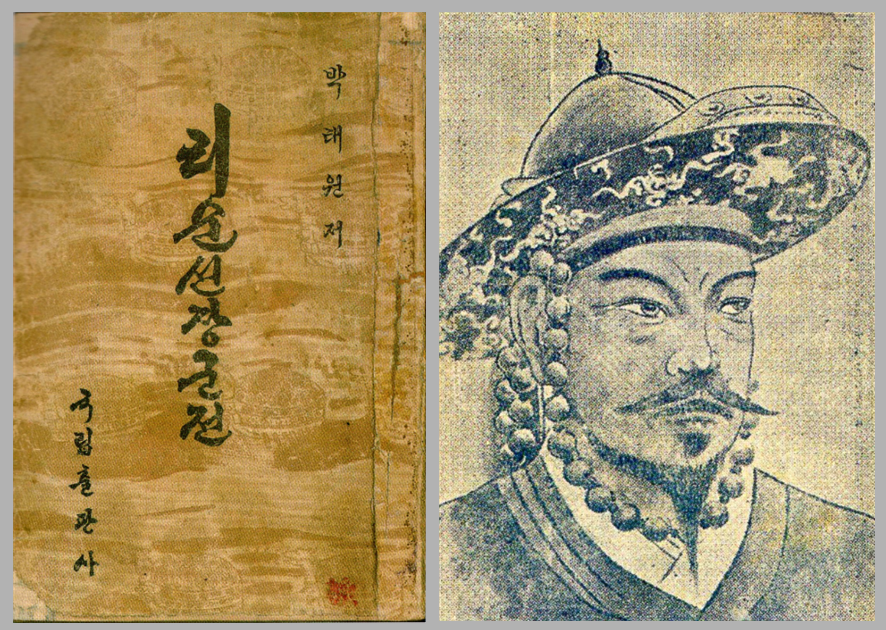 박태원 저
리순신장군전
국립출판사